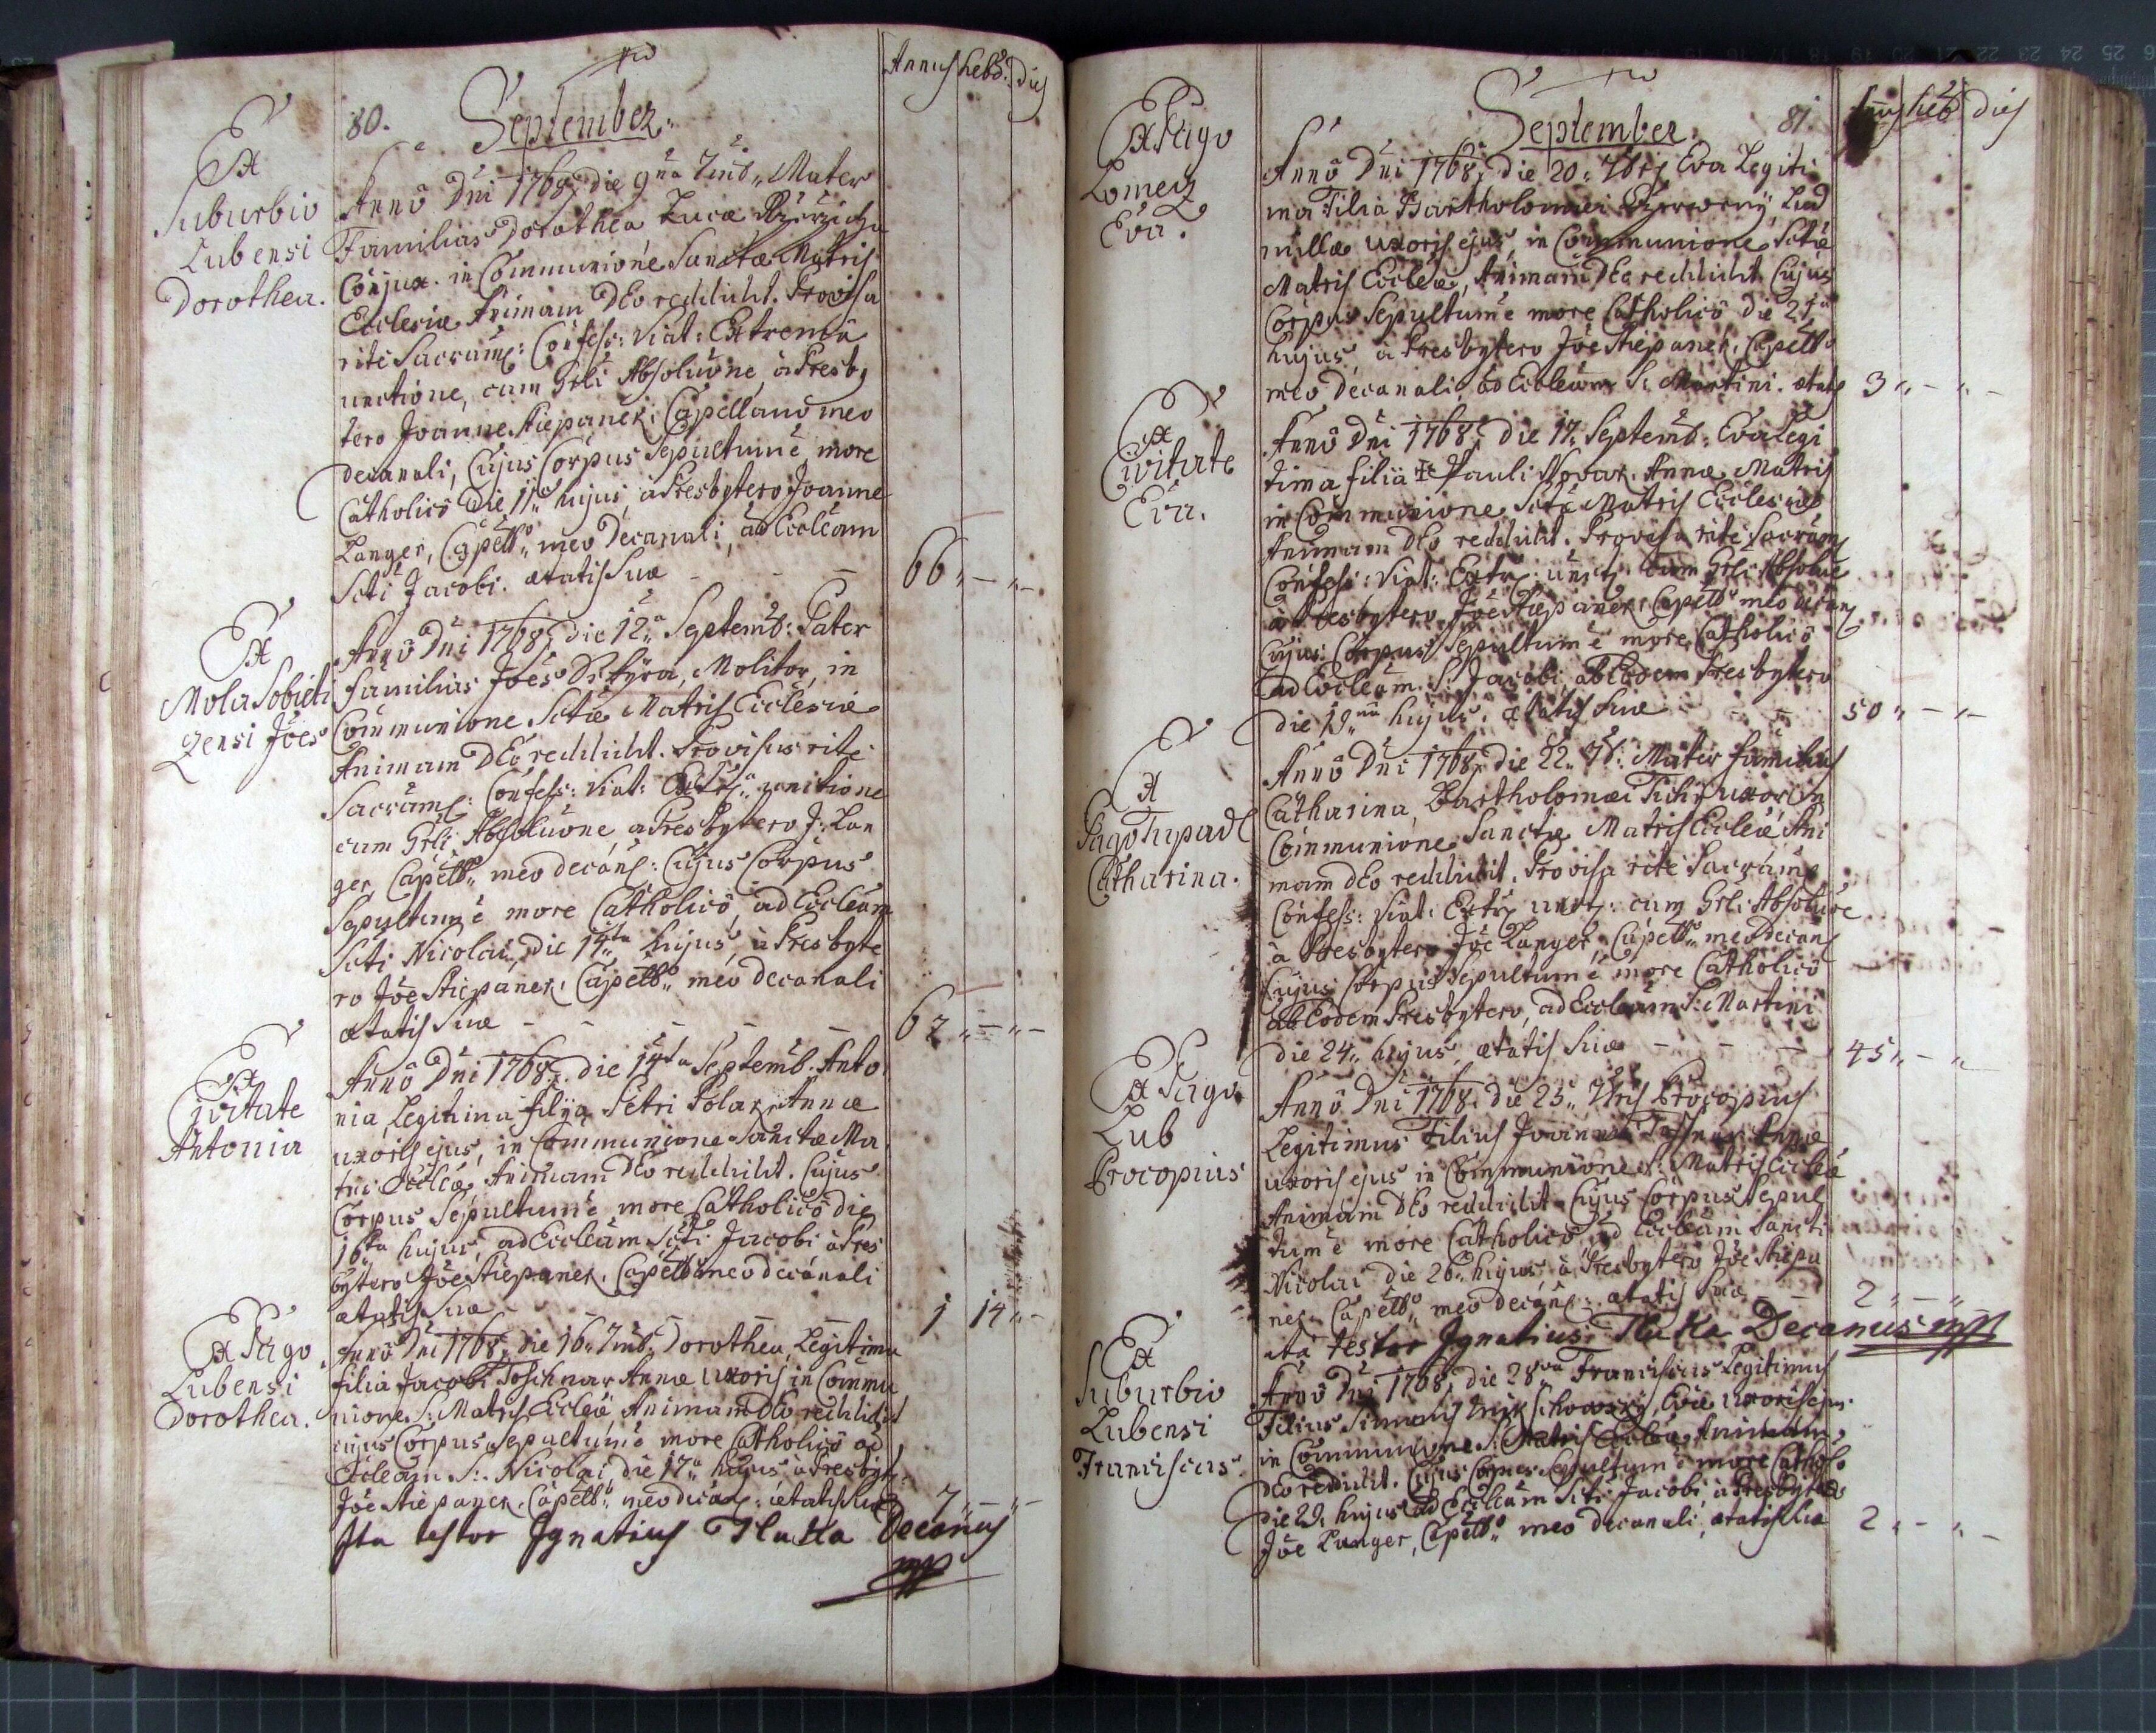 80.
September.
Annus hebd. dies
Ex
Suburbio
Lubensi
Dorothea.
Annô Dni 1768, die 9na 7mb. Mater
Familias Dorothea Lucæ
Conjux. in Communione Sanctæ Matris
Ecclesiæ Animam DEo reddidit. Provisa
rite Sacram: Confess: Viat: Extremâ
unctione, cum Grli Absolũone, â Presby
tero Joanne Stiepanek, Capellanô meo
decanali, Cujus Corpus Sepultum ẽ more
Catholicô die 11a hujus, â Presbytero Joanne
Langer, Capellô meo Decanali, ad Eccleam
Scti Jacobi. ætatis Suæ - - - 66 „ - „ -
Ex
Mola Sobieti
zensi Joes
Annô Dni 1768, die 12a Septemb: Pater
familias Joes Molitor, in
Communione Sctæ Matris Ecclesiæ
Animam DEo reddidit. Provisus rite
Sacram: Confess: Viat: Extr: unctione
cum Grli Absolũone a Presbytero J: Lan
ger, Capellô meo decan: Cujus Corpus
Sepultum ẽ more Catholicô ad Eccleam
Scti Nicolai, die 14ta hujus, â Presbyte
ro Jõe Stiepanek, Capellô meo decanali
ætatis Suæ - - - - 62 „ - „ -
Ex
Civitate
Antonia
Annô Dni 1768. die 14ta Septemb. Anto
nia, Legitima filia Petri Polak, Annæ
uxoris ejus, in Communione Sanctæ Ma
tris Eccleæ, Animam DEo reddidit. Cujus
Corpus Sepultum ẽ, more Catholicô die
16ta hujus, ad Eccleam Scti Jacobi, â Pres
bytero Jõe Stiepanek, Capellô meo decanali
ætatis Suæ - - - 1 14 „ -
Ex Pago
Lubensi
Dorothea.
Annô Dni 1768, die 16. 7mb. Dorothea, Legitima
filia Jacobi Toschnar Annæ Uxoris in Commu
nione S: Matris Eccleæ, Animam DEo reddidit
cujus Corpus Sepultum ẽ more Catholicô ad
Eccleam S: Nicolai, die 17a hujus â Presbyt:
Jõe Stiepanek, Capellô meo decan: ætatis Suæ 7 „ - „ -
Ita testor Ignatius Tluka Decanus
mp
September.
81.
Annus heb dies
Ex Pago
Lomecz
Eva.
Annô Dni 1768, die 20. 7bris Eva Legiti
ma Filia Bartholomæi Czerweny, Lud
millæ uxoris ejus, in Communione Sctæ
Matris Eccleæ, Animam DEo reddidit Cujus
Corpus Sepultum ẽ more Catholicô die 21a
hujus, â Presbytero Jõe Stiepanek, Capellô
meo decanali, ad Eccleam S: Martini. ætatis 3 „ - „ -
Ex
Civitate
Eva.
Annô Dni 1768, die 17. Septemb: Eva Legi
tima filia Pauli Nowak. Annæ Matris
in Communione Sctæ Matris Ecclesiæ
Animam DEo reddidit. Provisa rite Sacram
Confess: Viat: Extr: unct: cum Grli Absolũe
â Presbytero Jõe Stiepanek, Capellô meo decan
Cujus Corpus Sepultum ẽ more Catholicô
ad Eccleam S: Jacobi, ab Eodem Presbytero
die 19na hujus. ætatis Suæ - - 50 „ - „ -
Ex
Pago Tupadl
Catharina.
Annô Dni 1768, die 22. 7b: Mater familias
Catharina, Bartholomæi Tichy uxor in
Communione Sanctæ Matris Eccleæ Ani
mam DEo reddidit. Provisa rite Sacram
Confess: Viat: Extr: unct: cum Grli Absolũe
â Presbytero Jõe Langer, Capellô meo decan
Cujus Corpus Sepultum ẽ more Catholicô
ab Eodem Presbytero, ad Eccleam S: Martini
die 24. hujus, ætatis Suæ - - - 45 „ - „
Ex Pago
Lub
Procopius
Annô Dni 1768. die 25. 7bris Procopius
Legitimus Filius Joannis Annæ
uxoris ejus in Communione S: Matris Eccleæ
Animam DEo reddidit Cujus Corpus Sepul
tum ẽ more Catholicô ad Eccleam Sancti
Nicolai die 26. hujus, â Presbytero Jõe Stiepa
nek, Capellô meo decan: ætatis Suæ - - 2 „ - „ -
ita testor Ignatius Tluka Decanus mp
Ex
Suburbio
Lubensi
Franciscus
Annô Dni 1768, die 28va Franciscus Legitimus
Filius Simonis Evæ uxoris ejus.
in Communione S: Matris Eccleæ Animam
DEo reddidit. Cujus Corpus Sepultum ẽ more Cathol:
die 29. hujus ad Eccleam Scti Jacobi, â Presbytero
Jõe Langer, Capellô meo decanali, ætatis Suæ 2 „ - „ -